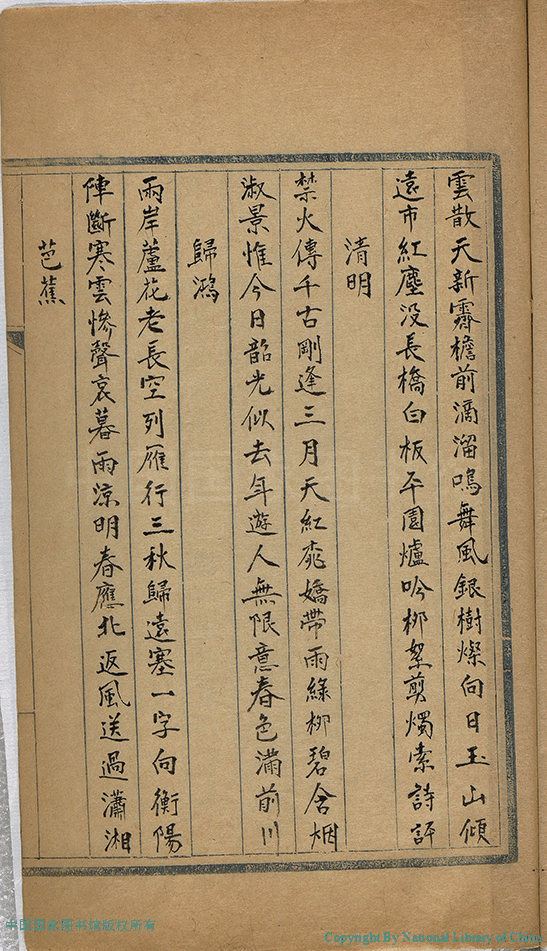 雲散天新霽檐前滴溜鳴舞風銀樹燦向日玉山傾
遠市紅塵没長橋白板平園爐吟栁絮剪燭索詩評
清明
禁火傳千古剛逢三月天紅桃嬌帶雨綠栁碧含烟
淑景惟今日韶光似去年遊人無限意春色滿前川
歸鴻
兩岸蘆花老長空列雁行三秋歸遠塞一字向衡陽
陣斷寒雲慘聲哀暮雨涼明春應北返風送過瀟湘
芭蕉
中国国家图书馆版权所有
Copyright By National Library of China